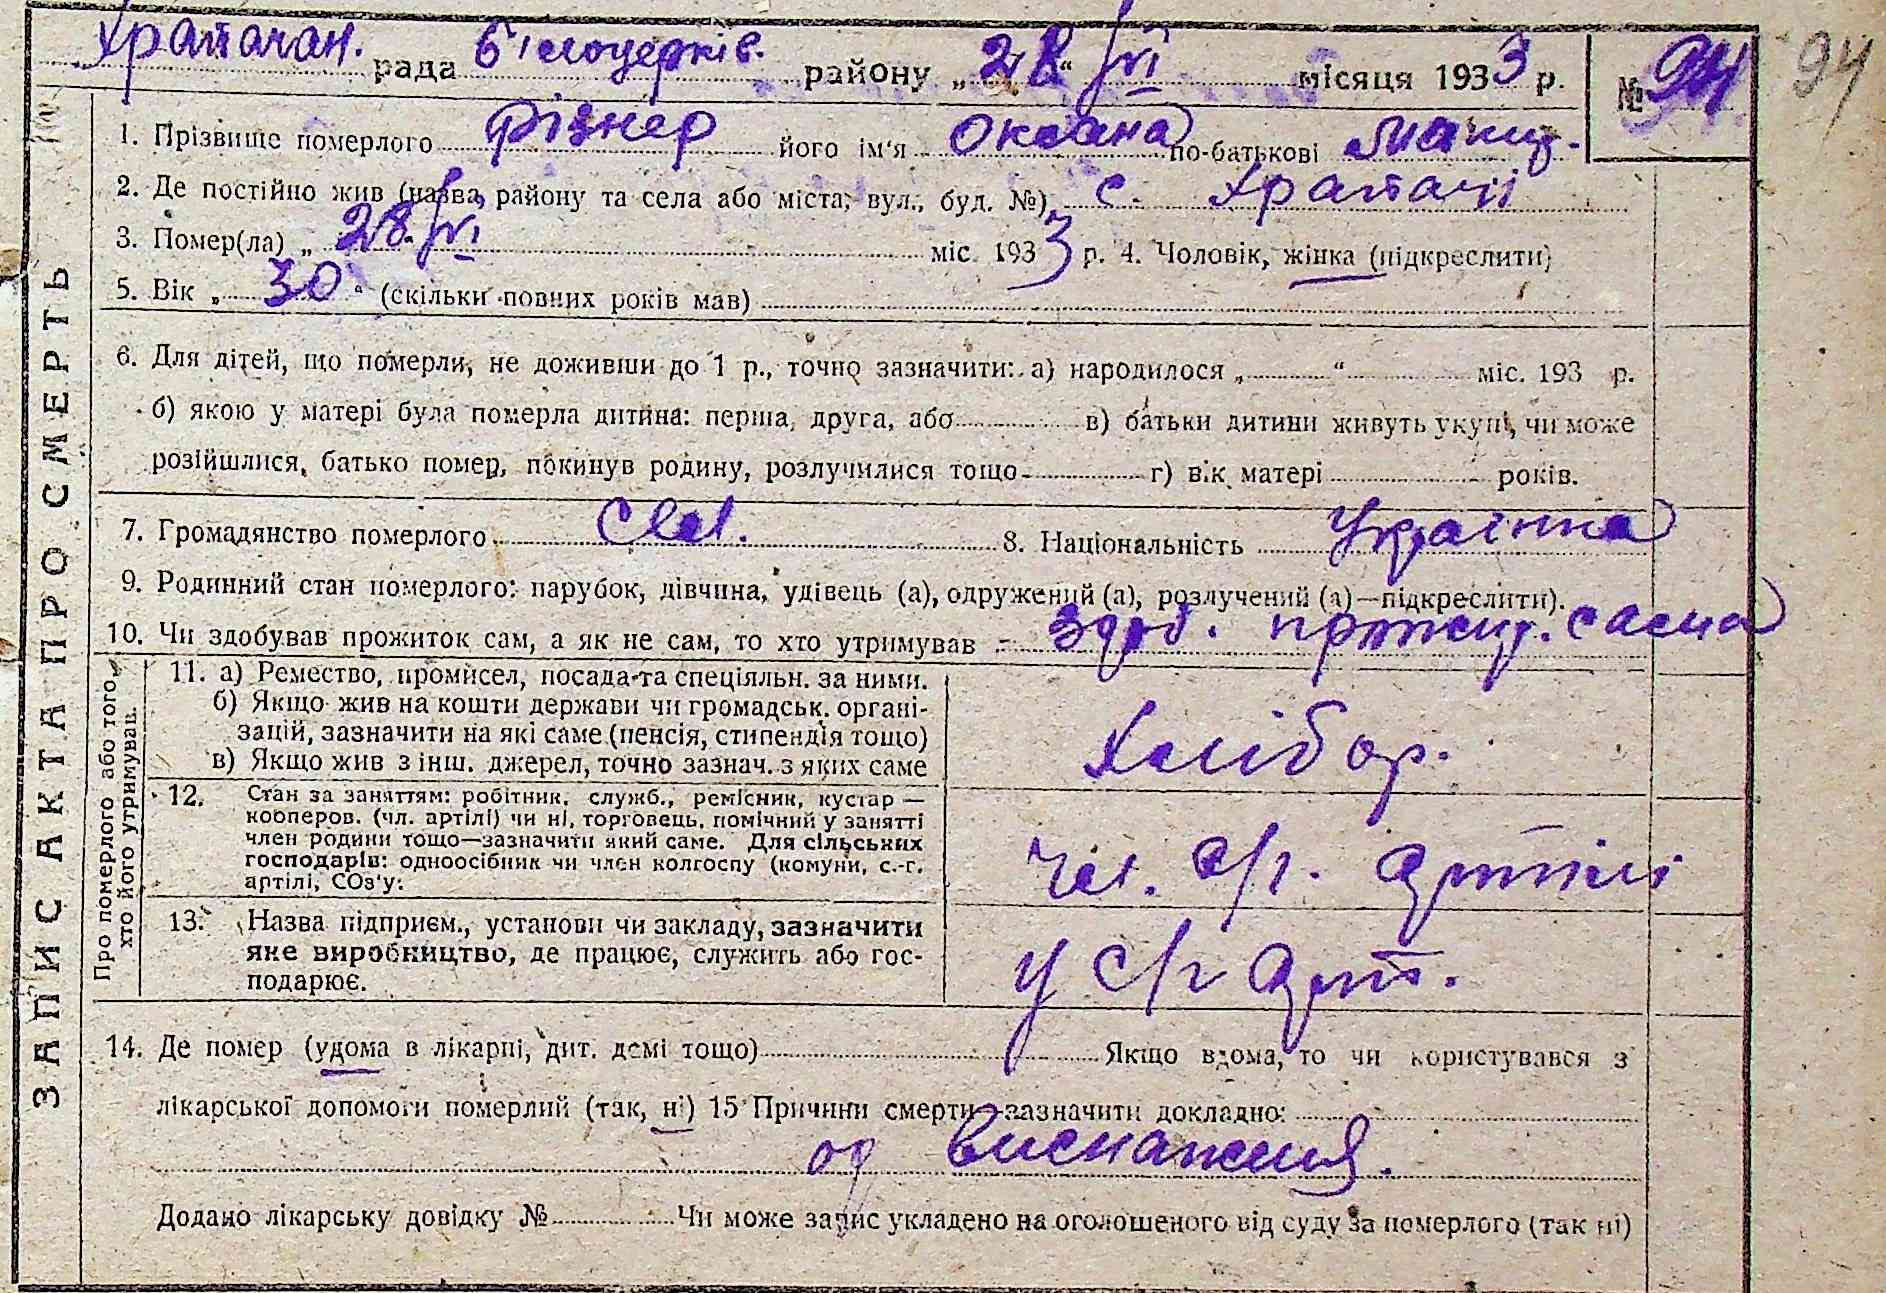 Храпачан. рада Білоцерків. району „28“ /VI місяця 1933 р. № 94 94
1. Прізвище померлого Різнер його ім'я Оксана по-батькові
2. Де постійно жив (назва району та села або міста; вул., буд. №) с. Храпачі
3. Помер(ла) „ 28/VI міс. 1933 р. 4. Чоловік, жінка (підкреслити)
5. Вік „ 30 “ (скільки повних років мав)
6. Для дітей, що померли, не доживши до 1 р., точно зазначити: а) народилося „ “ міс. 193 р.
б) якою у матері була померла дитина: перша, друга, або в) батьки дитини живуть укупі, чи може
розійшлися, батько помер, покинув родину, розлучилися тощо г) вік матері років.
7. Громадянство померлого 8. Національність Українка
9. Родинний стан померлого: парубок, дівчина, удівець (а), одружений (а), розлучений (а)—підкреслити).
10. Чи здобував прожиток сам, а як не сам, то хто утримував здоб. прожит. сама
ЗАПИС АКТА ПРО СМЕРТЬ
Про померлого або того,
хто його утримував.
11. а) Ремество, промисел, посада та спеціяльн. за ними.
б) Якщо жив на кошти держави чи громадськ. органі-
зацій, зазначити на які саме (пенсія, стипендія тощо)
в) Якщо жив з інш. джерел, точно зазнач. з яких саме
Хлібор.
12. Стан за заняттям: робітник, служб., ремісник, кустар —
кооперов. (чл. артілі) чи ні, торговець, помічний у занятті
член родини тощо—зазначити який саме. Для сільських
господарів: одноосібник чи член колгоспу (комуни, с.-г.
артілі, СОз'у:
чл. с/г. артілі
13. Назва підприєм., установи чи закладу, зазначити
яке виробництво, де працює, служить або гос-
подарює.
у с/г арт.
14. Де помер (удома в лікарні, дит. домі тощо) Якщо вдома, то чи користувався з
лікарської допомоги померлий (так, ні) 15 Причини смерти зазначити докладно:
од виснаження.
Додано лікарську довідку № Чи може запис укладено на оголошеного від суду за померлого (так ні)